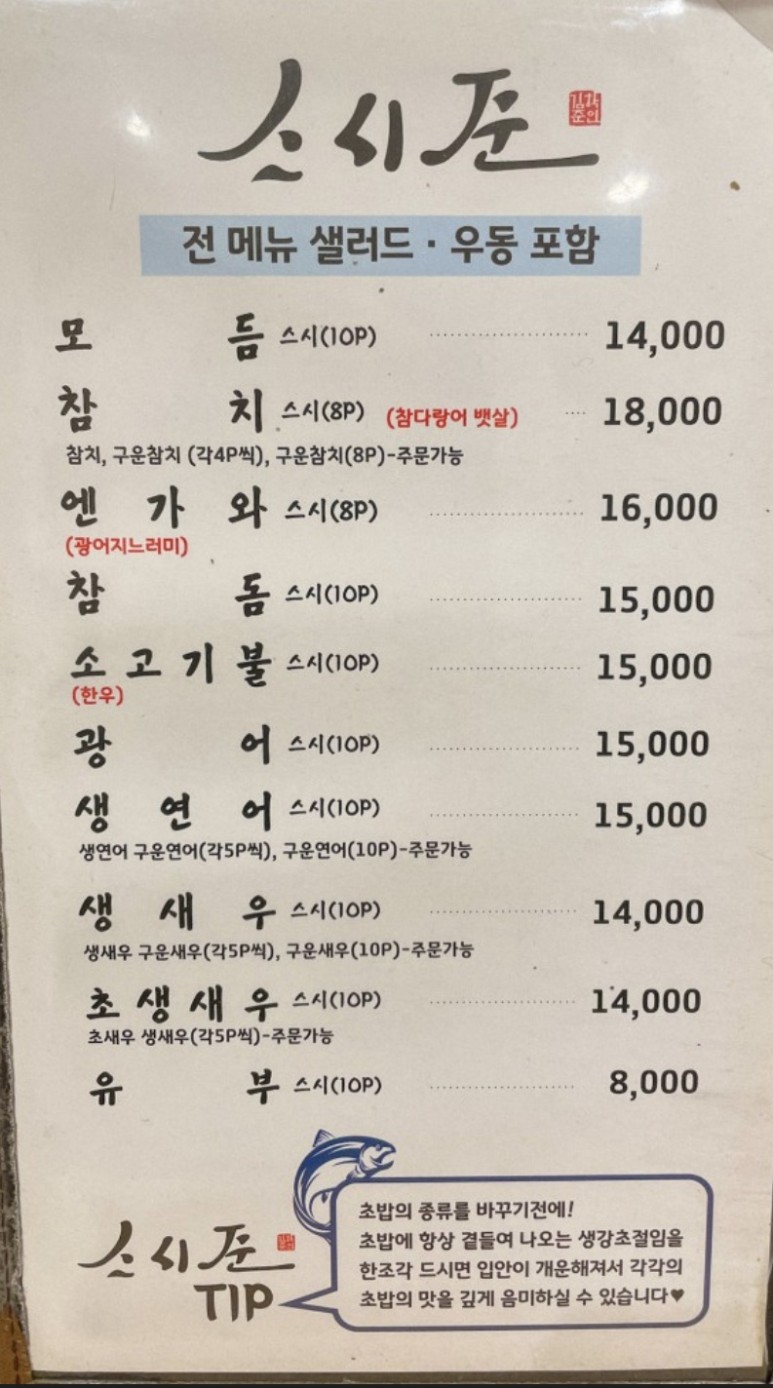 스시준
전 메뉴 샐러드 · 우동 포함
모듬 스시(10P) 14,000
참치 스시(8P) (참다랑어 뱃살) 18,000
참치, 구운참치 (각4P씩), 구운참치(8P)-주문가능
엔가와 스시(8P) 16,000
(광어지느러미)
참돔 스시(10P) 15,000
소고기불 스시(10P) 15,000
(한우)
광어 스시(10P) 15,000
생연어 스시(10P) 15,000
생연어 구운연어(각5P씩), 구운연어(10P)-주문가능
생새우 스시(10P) 14,000
생새우 구운새우(각5P씩), 구운새우(10P)-주문가능
초생새우 스시(10P) 14,000
초새우 생새우(각5P씩)-주문가능
유부 스시(10P) 8,000
스시준
TIP
초밥의 종류를 바꾸기전에!
초밥에 항상 곁들여 나오는 생강초절임을
한조각 드시면 입안이 개운해져서 각각의
초밥의 맛을 깊게 음미하실 수 있습니다♥